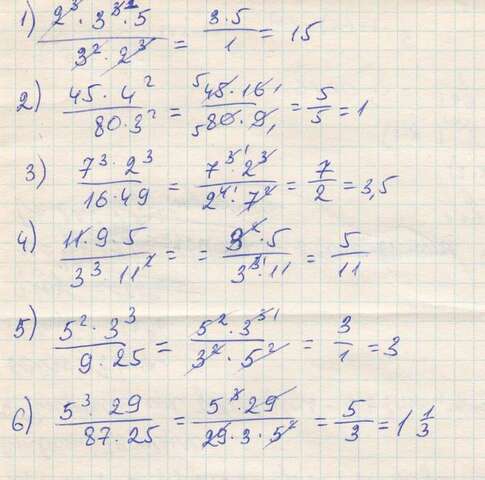 1) 2³ · 3³ · 5 / 3² · 2³ = 3 · 5 / 1 = 15
2) 45 · 4² / 80 · 3² = 45 · 16 / 80 · 9 = 5/5 = 1
3) 7³ · 2³ / 16 · 49 = 7³ · 2³ / 2⁴ · 7² = 7/2 = 3,5
4) 11 · 9 · 5 / 3³ 11² = = 3² · 5 / 3³ · 11 = 5/11
5) 5² · 3³ / 9 · 25 = 5² · 3³ / 3² · 5² = 3/1 = 3
6) 5³ · 29 / 87 · 25 = 5³ · 29 / 29 · 3 · 5² = 5/3 = 1 1/3